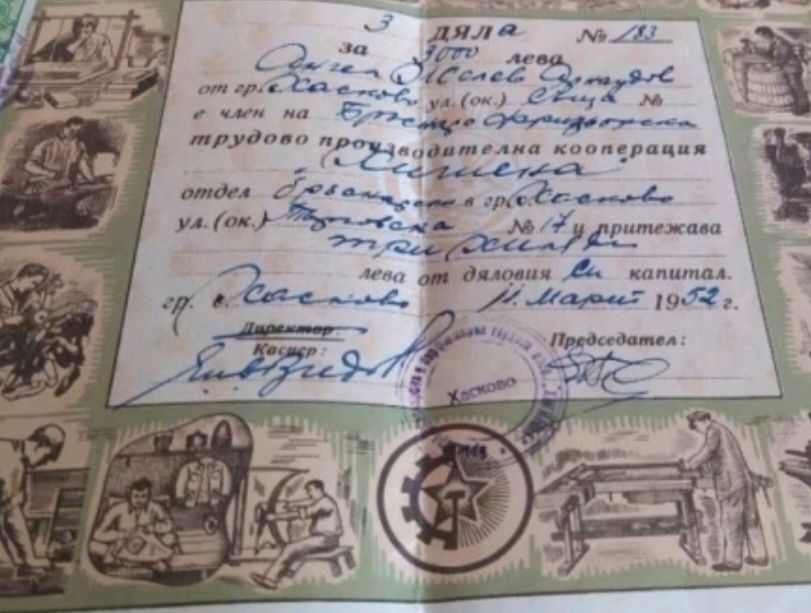 3 ДЯЛа № 183
за 3000 лева
Ангел Желев
от гр. с. Хасково ул. (ок.) Съща №
е член на Бръснаро Фризьорска
трудово производителна кооперация
"Хигиена"
отдел Бръснарски в гр. Хасково
ул. (ок.) Търговска № 17 и притежава
три хиляди
лева от дяловия си капитал.
гр. с. Хасково 11. Март 1952 г.
Директор:
Касиер:
Председател:
Хасково